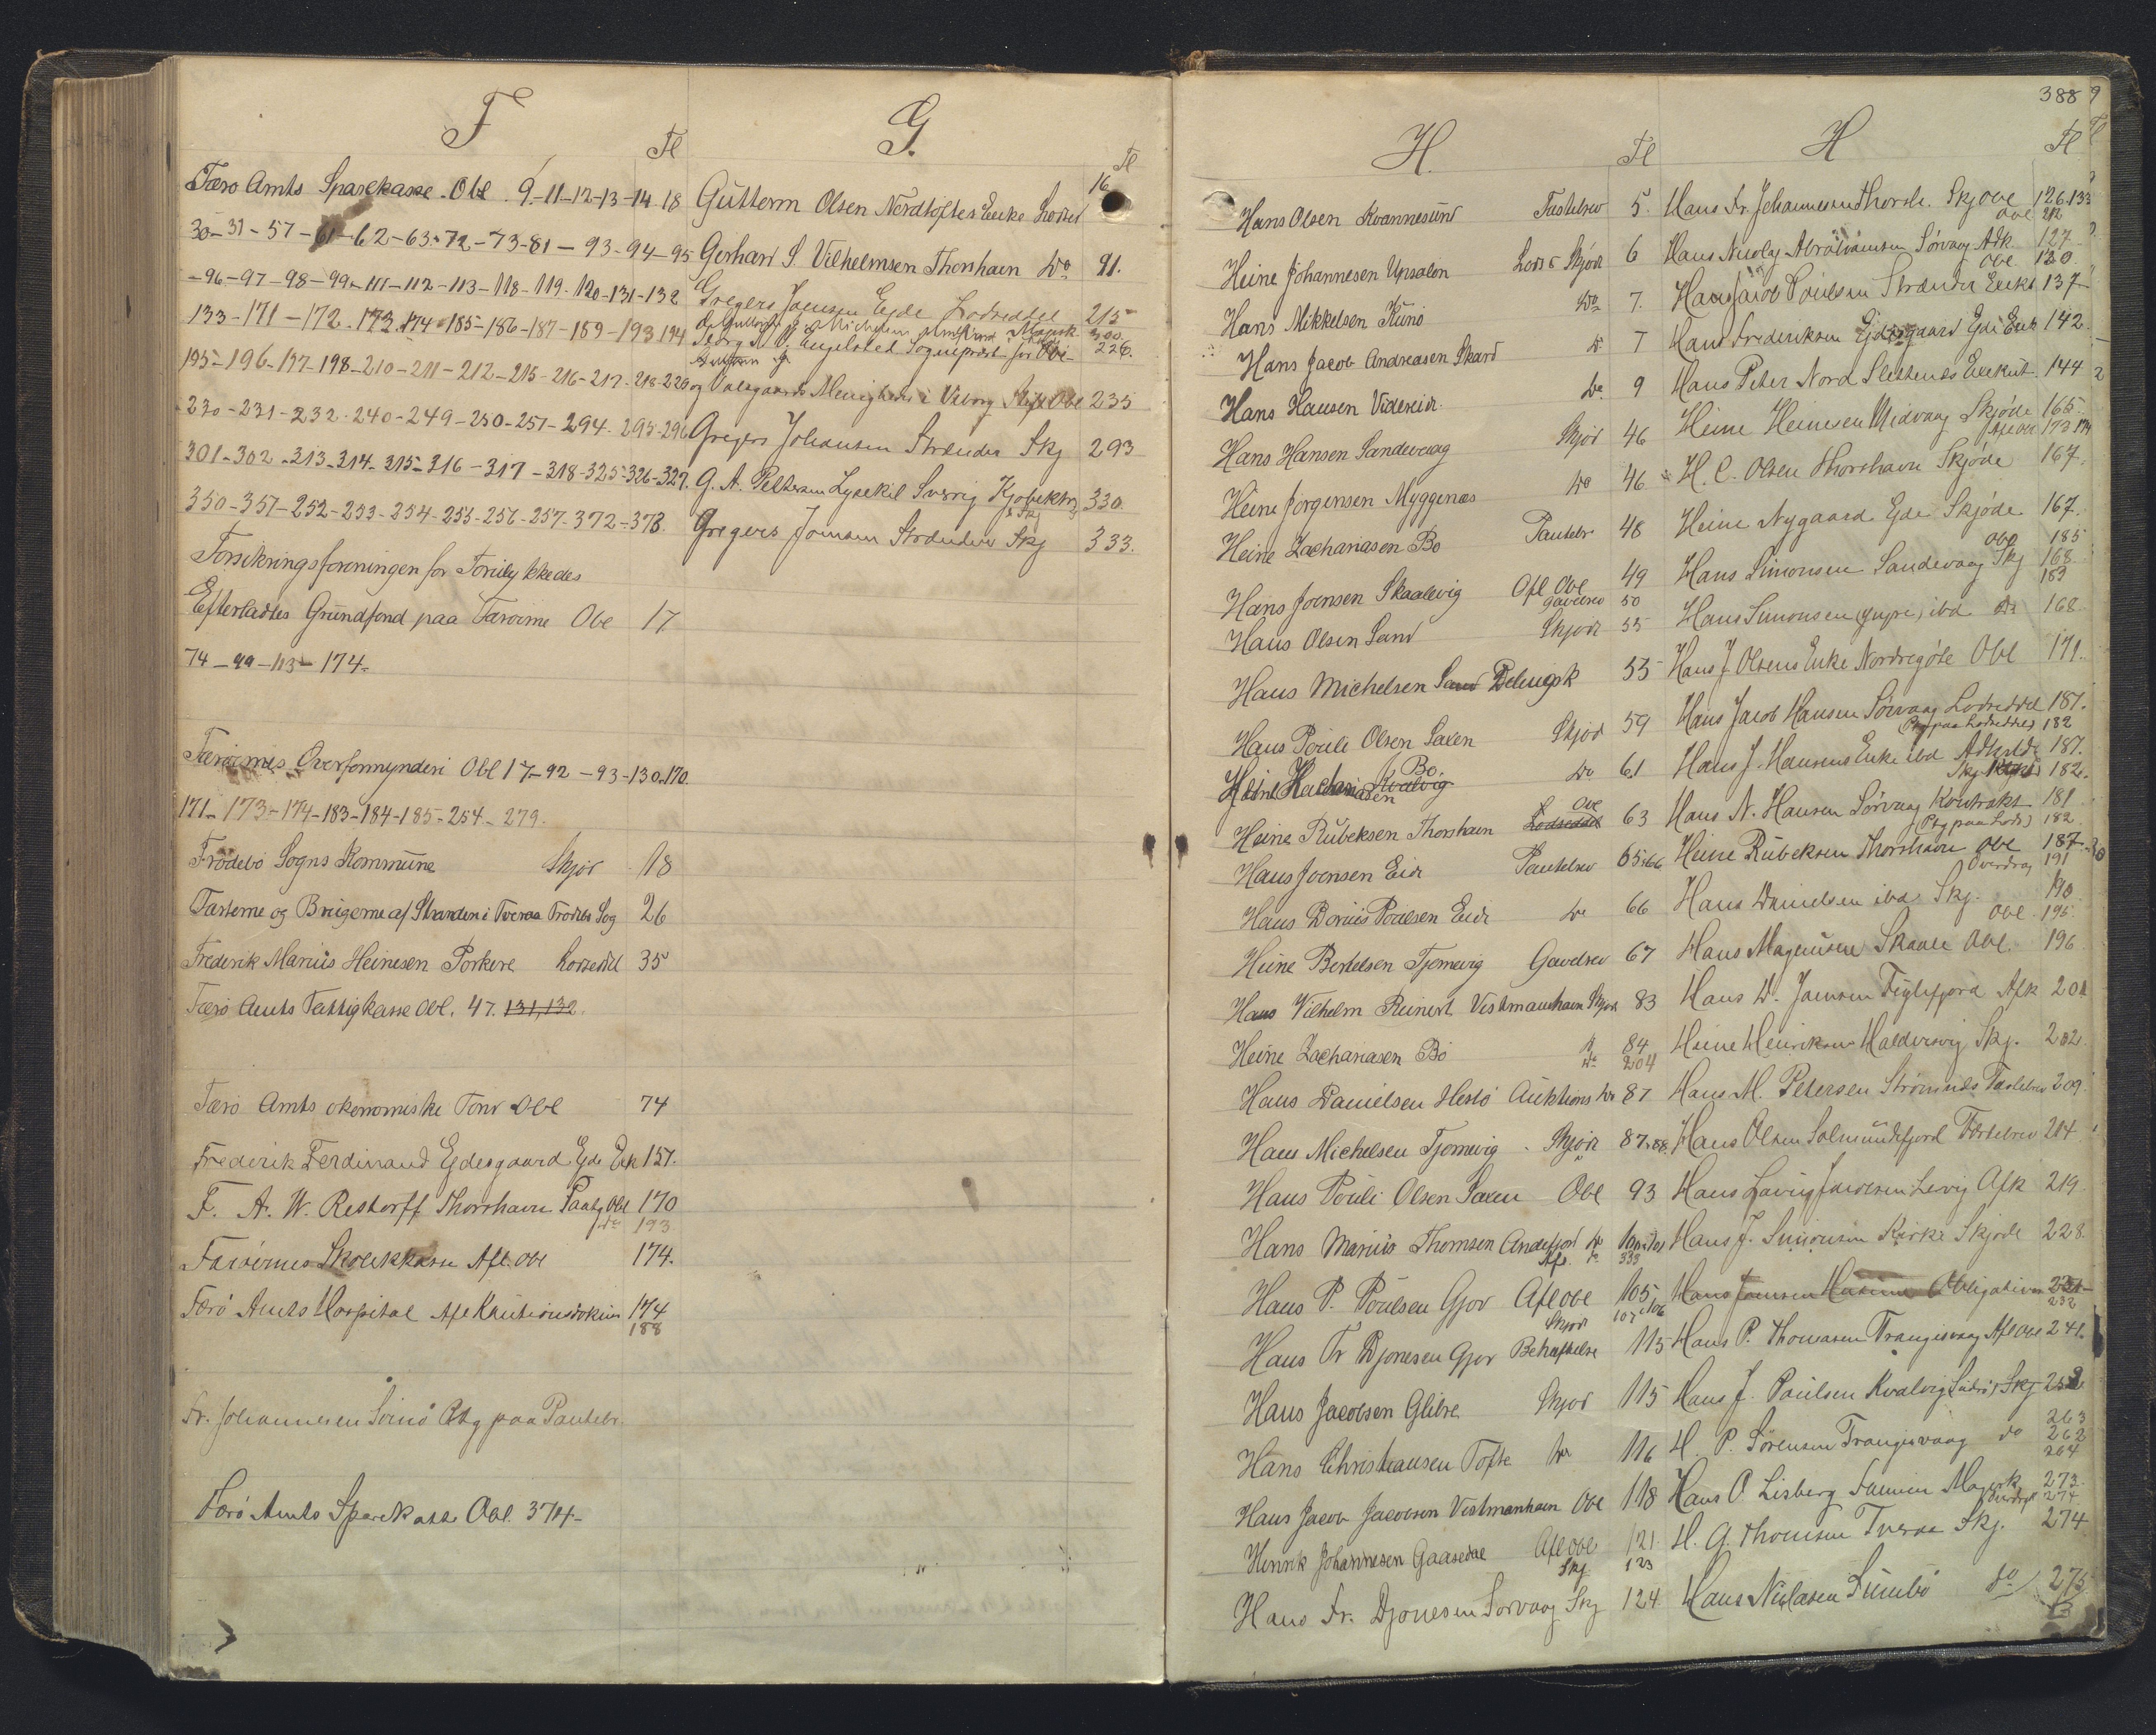 F
Fl
Færø Amts Sparekasse Obl. 9-11-12-13-14-18
30-31-57-61-62-63-72-73-81-93-94-95
-96-97-98-99-111-112-113-118-119-120-131-132
133-171-172-173-174-185-186-187-189-193-194
195-196-197-198-210-211-212-215-216-217-218-226
230-231-232-240-249-250-251-294-295-296
301-302-313-314-315-316-317-318-325-326-327.
350-351-252-253-254-255-256-257-372-378.
Forsikringsforeningen for Forulykkedes
Efterladtes Grundfond paa Færøerne Obl 17
74-99-113-174-
Færøernes Overformynderi Obl 17-92-93-130-170.
171-173-174-183-184-185-254-279.
Frodebø Sogns Kommune Skjød 18
Fæsterne og Brugerne af Stranden i Tveraa Frodebø Sog 26
Frederik Marius Heinesen Porkere Lodseddel 35
Færø Amts Fattigkasse Obl. 47. 131, 132.
Færø Amts økonomiske Fond Obl 74
Frederik Ferdinand Ejdesgaard Ejde Exk 157.
F. A. W. Restorff Thorshavn Pantg Obl 170
do 193
Færøernes Skolekasse Afl. Obl 174.
Færø Amts Hospital Afl Kautionsdokum 174
188
Fr. Johannesen Sumø Ptg paa Pantebr.
Færø Amts Sparekasse Obl. 374-
G.
Fl
Guttorm Olsen Nordtoftes Enke Lodsed 16
Gerhard S. Vilhelmsen Thorshavn Do 91.
Gregers Joensen Ejde Lodseddel 215
300
Georg Engelsted Sognepræst for 226.
og Valsgaards Menigheder i Viborg Stift Obl 235
Gregers Johansen Strænder Skj 293
G. A. Pettersen Lysekil Sverrig Kjøbektr 330.
& Skj
Gregers Joensen Strænder Skj 333.
388 9
H.
Fl
Hans Olsen Kvannesund Fæstebrev 5.
Heine Johannesen Upsalon Lods & Skjøde 6
Hans Mikkelsen Kunø Do 7.
Hans Jacob Andreasen Skard Do 7
Hans Hansen Viderejde Do 9
Hans Hansen Sandevaag Skjød 46
Heine Jørgensen Myggenæs Do 46
Heine Zachariasen Bø Pantebr 48
Hans Joensen Skaalevig Afl Obl 49
Gavebrev 50
Hans Olsen Sand Skjøde 55
Hans Michelsen Sand Delingsk 55
Hans Pouli Olsen Saxen Skjød 59
Bø. Do 61
Heine Rubeksen Thorshavn Lodseddel Obl 63
Hans Joensen Eide Pantebrev 65,66
Hans Dorius Poulsen Eide Do 66
Heine Bertelsen Tjørnevig Gavebrev 67
Hans Vilhelm Reinert Vestmanhavn Skjøde 83
Heine Zachariasen Bø 84
do 204
Hans Danielsen Hestø Auktions do 87
Hans Michelsen Tjørnevig Skjøde 87,88.
Hans Pouli Olsen Saxen Obl 93
Hans Marius Thomsen Andefjord Do 100,101
333
Hans P. Poulsen Gjov Afl Obl 105, 106
Skjøde 107
Hans Fr Djonesen Gjov Behæftelse 115
Hans Jacobsen Glibre Skjød 115
Hans Christiansen Tofte Do 116
Hans Jacob Jacobsen Vestmanhavn Obl 118
Henrik Johannesen Gaasedal Afl Obl 121
Skj 123
Hans Fr. Djonesen Sørvaag Skj 124
H
Fl
Hans Fr. Johannesen Thorsh. Skj Obl 126.133
Obl 212
Hans Nicolaj Abrahamsen Sørvaag Adk 127
Obl 130
Hans Jacob Poulsen Strænder Exekt 137
Hans Frederiksen Ejdesgaard Ejde Exek 142
Hans Peter Nord Slettenæs Exekut. 144
Heine Heinesen Midvaag Skjøde 165.
Afl Obl 173,174
H. C. Olsen Thorshavn Skjøde 167.
Heine Nygaard Ejde Skjøde 167.
Obl 185
Hans Simonsen Sandevaag Skj 168.
183
Hans Simonsen (yngre) ibd do 168
Hans J. Olsens Enke Nordregøte Obl 171.
Hans Jacob Hansen Sørvaag Lodseddel 181.
Ptg paa Lodseddel 182
Hans J. Hansens Enke ibd Adkst 181.
Skj 182.
Hans N. Hansen Sørvaag Kontrakt 181
(Ptg paa Lods) 182
Heine Rubeksen Thorshavn Obl 187
Overdrag 191
Hans Danielsen ibd Skj. 190
Obl 195.
Hans Magnusen Skaale Obl. 196
Hans D. Joensen Fuglefjord Afk 201
Heine Henriksen Haldersvig Skj. 202.
Hans M. Petersen Strømnæs Fæstebrev 209.
Hans Olsen Solmundefjord Fæstebrev 214
Hans Lavrits Jacobsen Lervig Afk 219
Hans J. Simonsen Kirke Skjøde 228
Hans Joensen Obligation 231
232
Hans P. Thomasen Trangisvaag Afl Obl 241.
Hans J. Poulsen Kvalvig Suderø Skj 252
263
H. P. Sørensen Trangisvaag do 262
264
Hans O. Lisberg Famien Mageskk 273.
Overdrgt 274
H. G. Thomsen Tveraa Skj. 274
Hans Niclasen Sumbø do 275